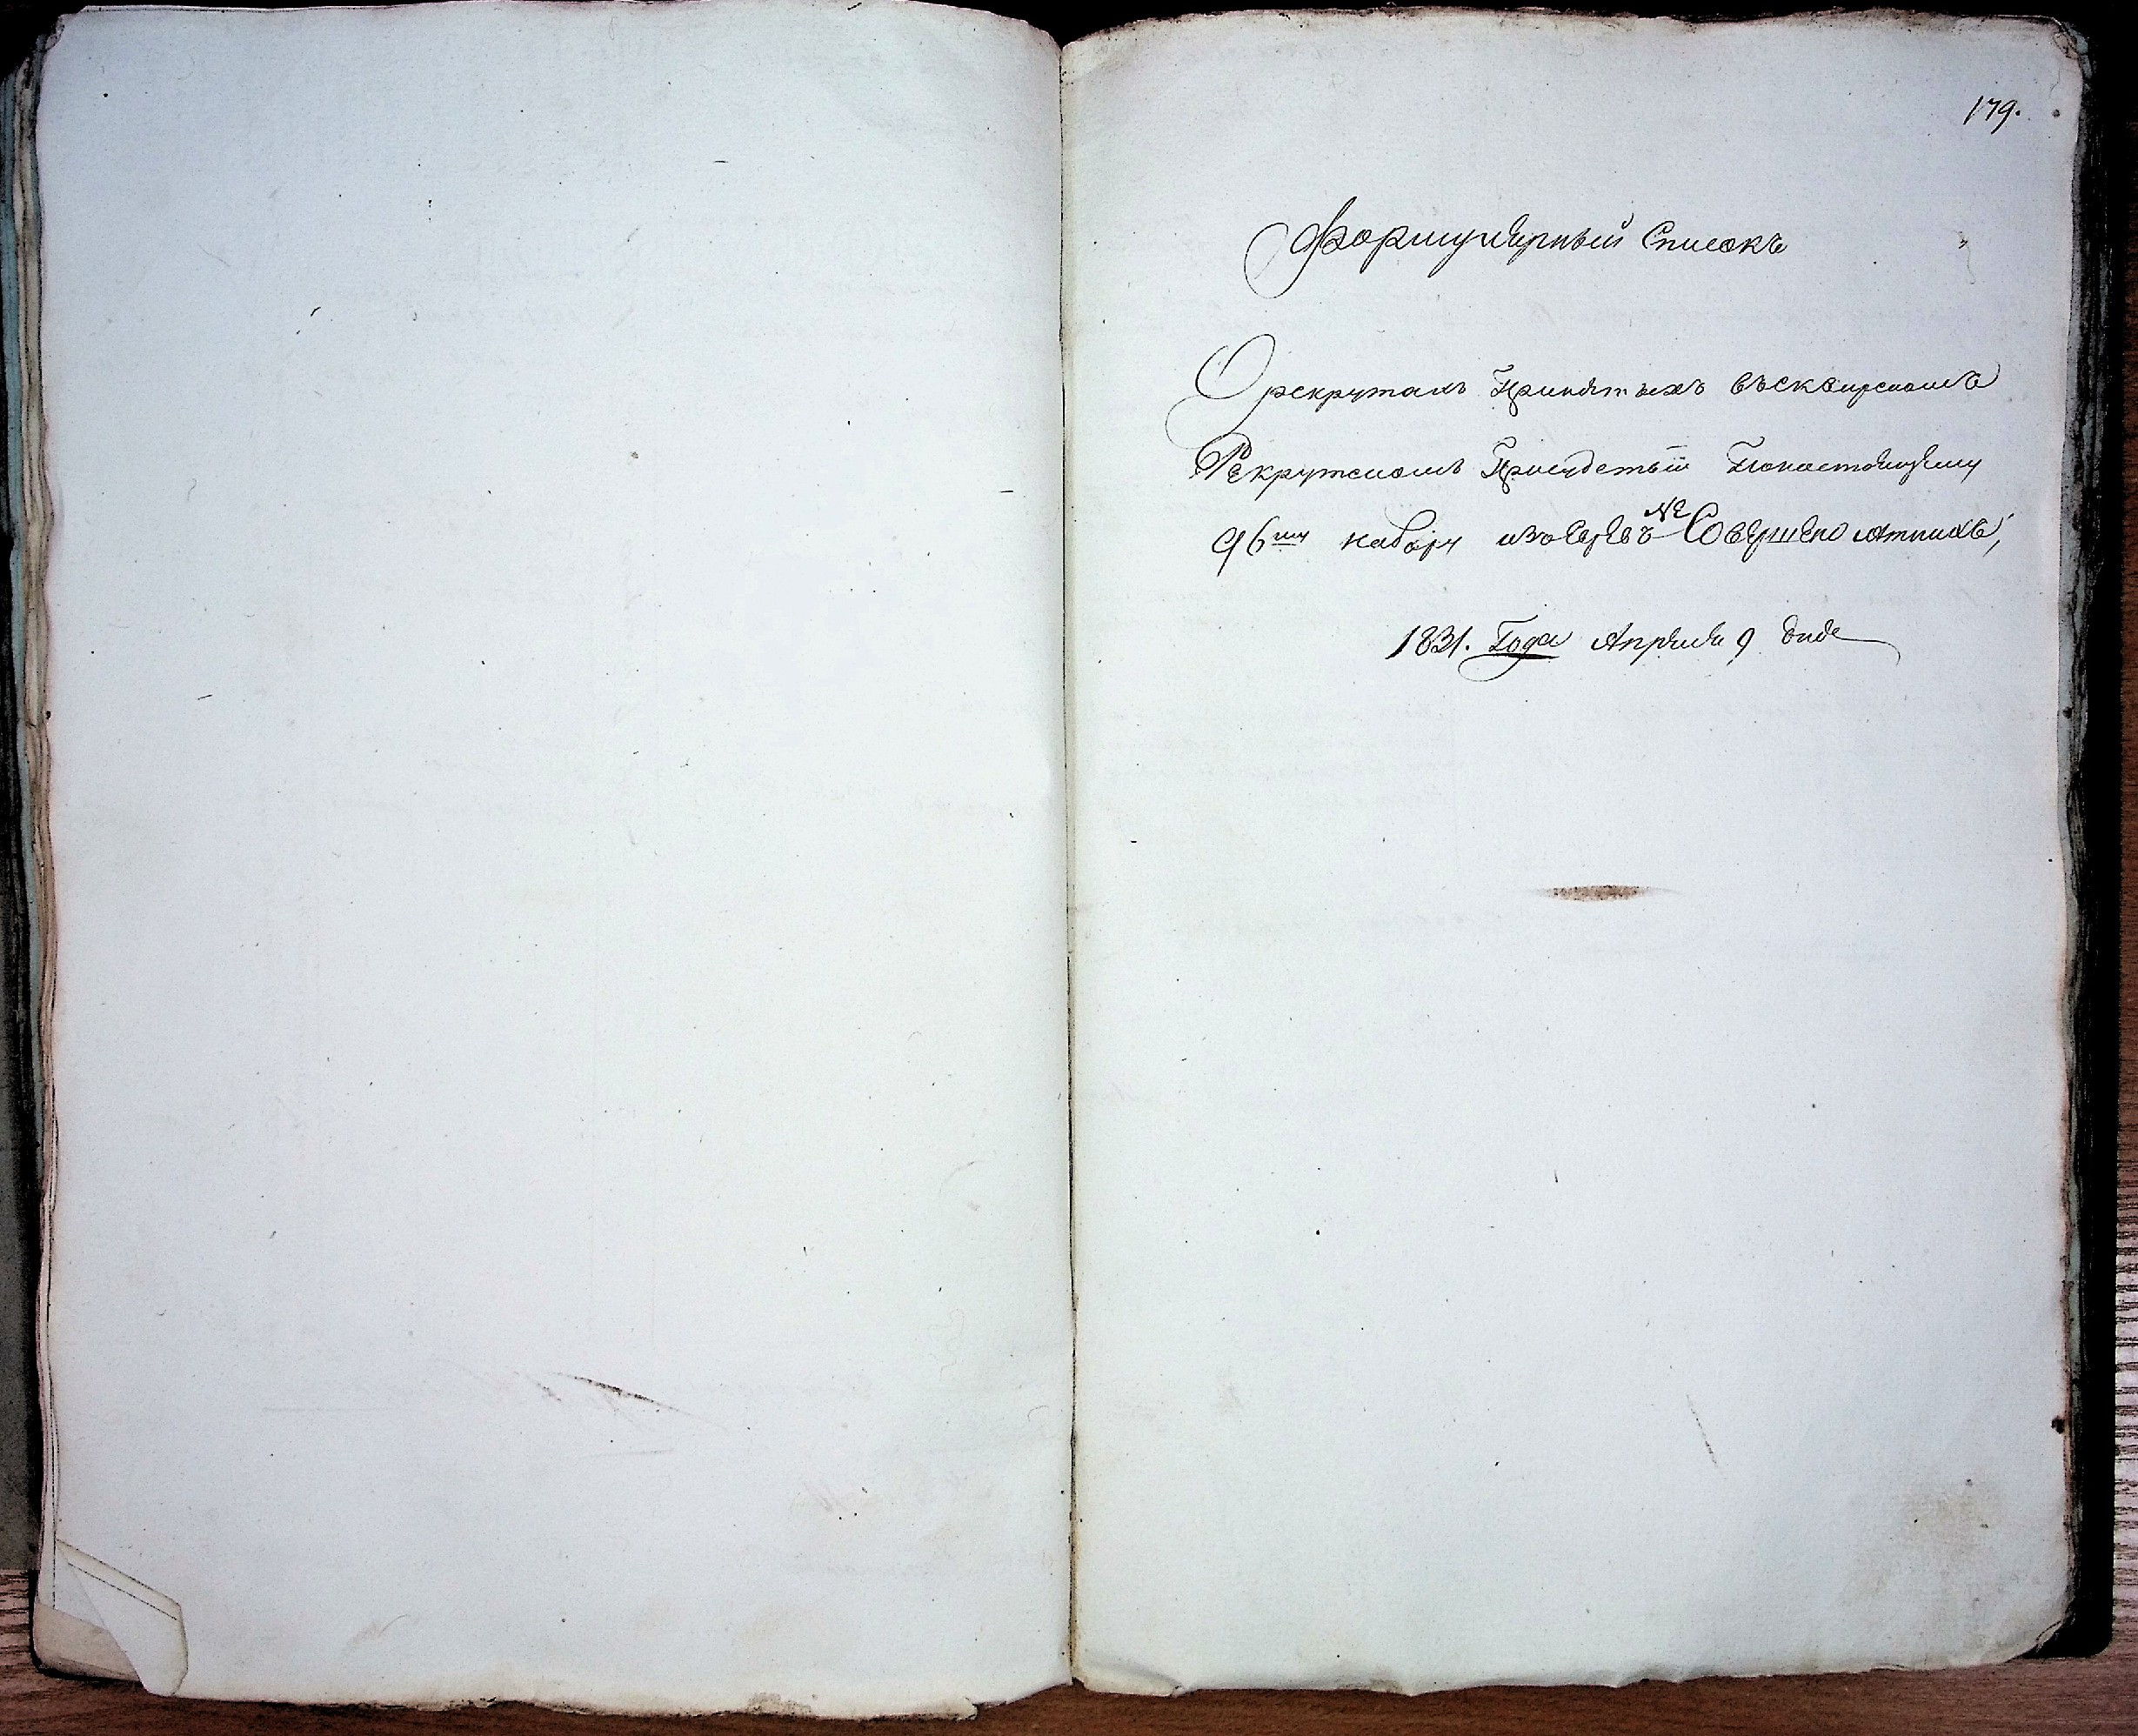 179.
Формулярный Списокъ
О рекрутахъ Принятыхъ въ сквирскомъ
Рекрутскомъ Присудствіи Понастоящему
96му набору изъ Евреевъ НЕ Совершенолѣтнихъ,
1831. Года Апреля 9 дня